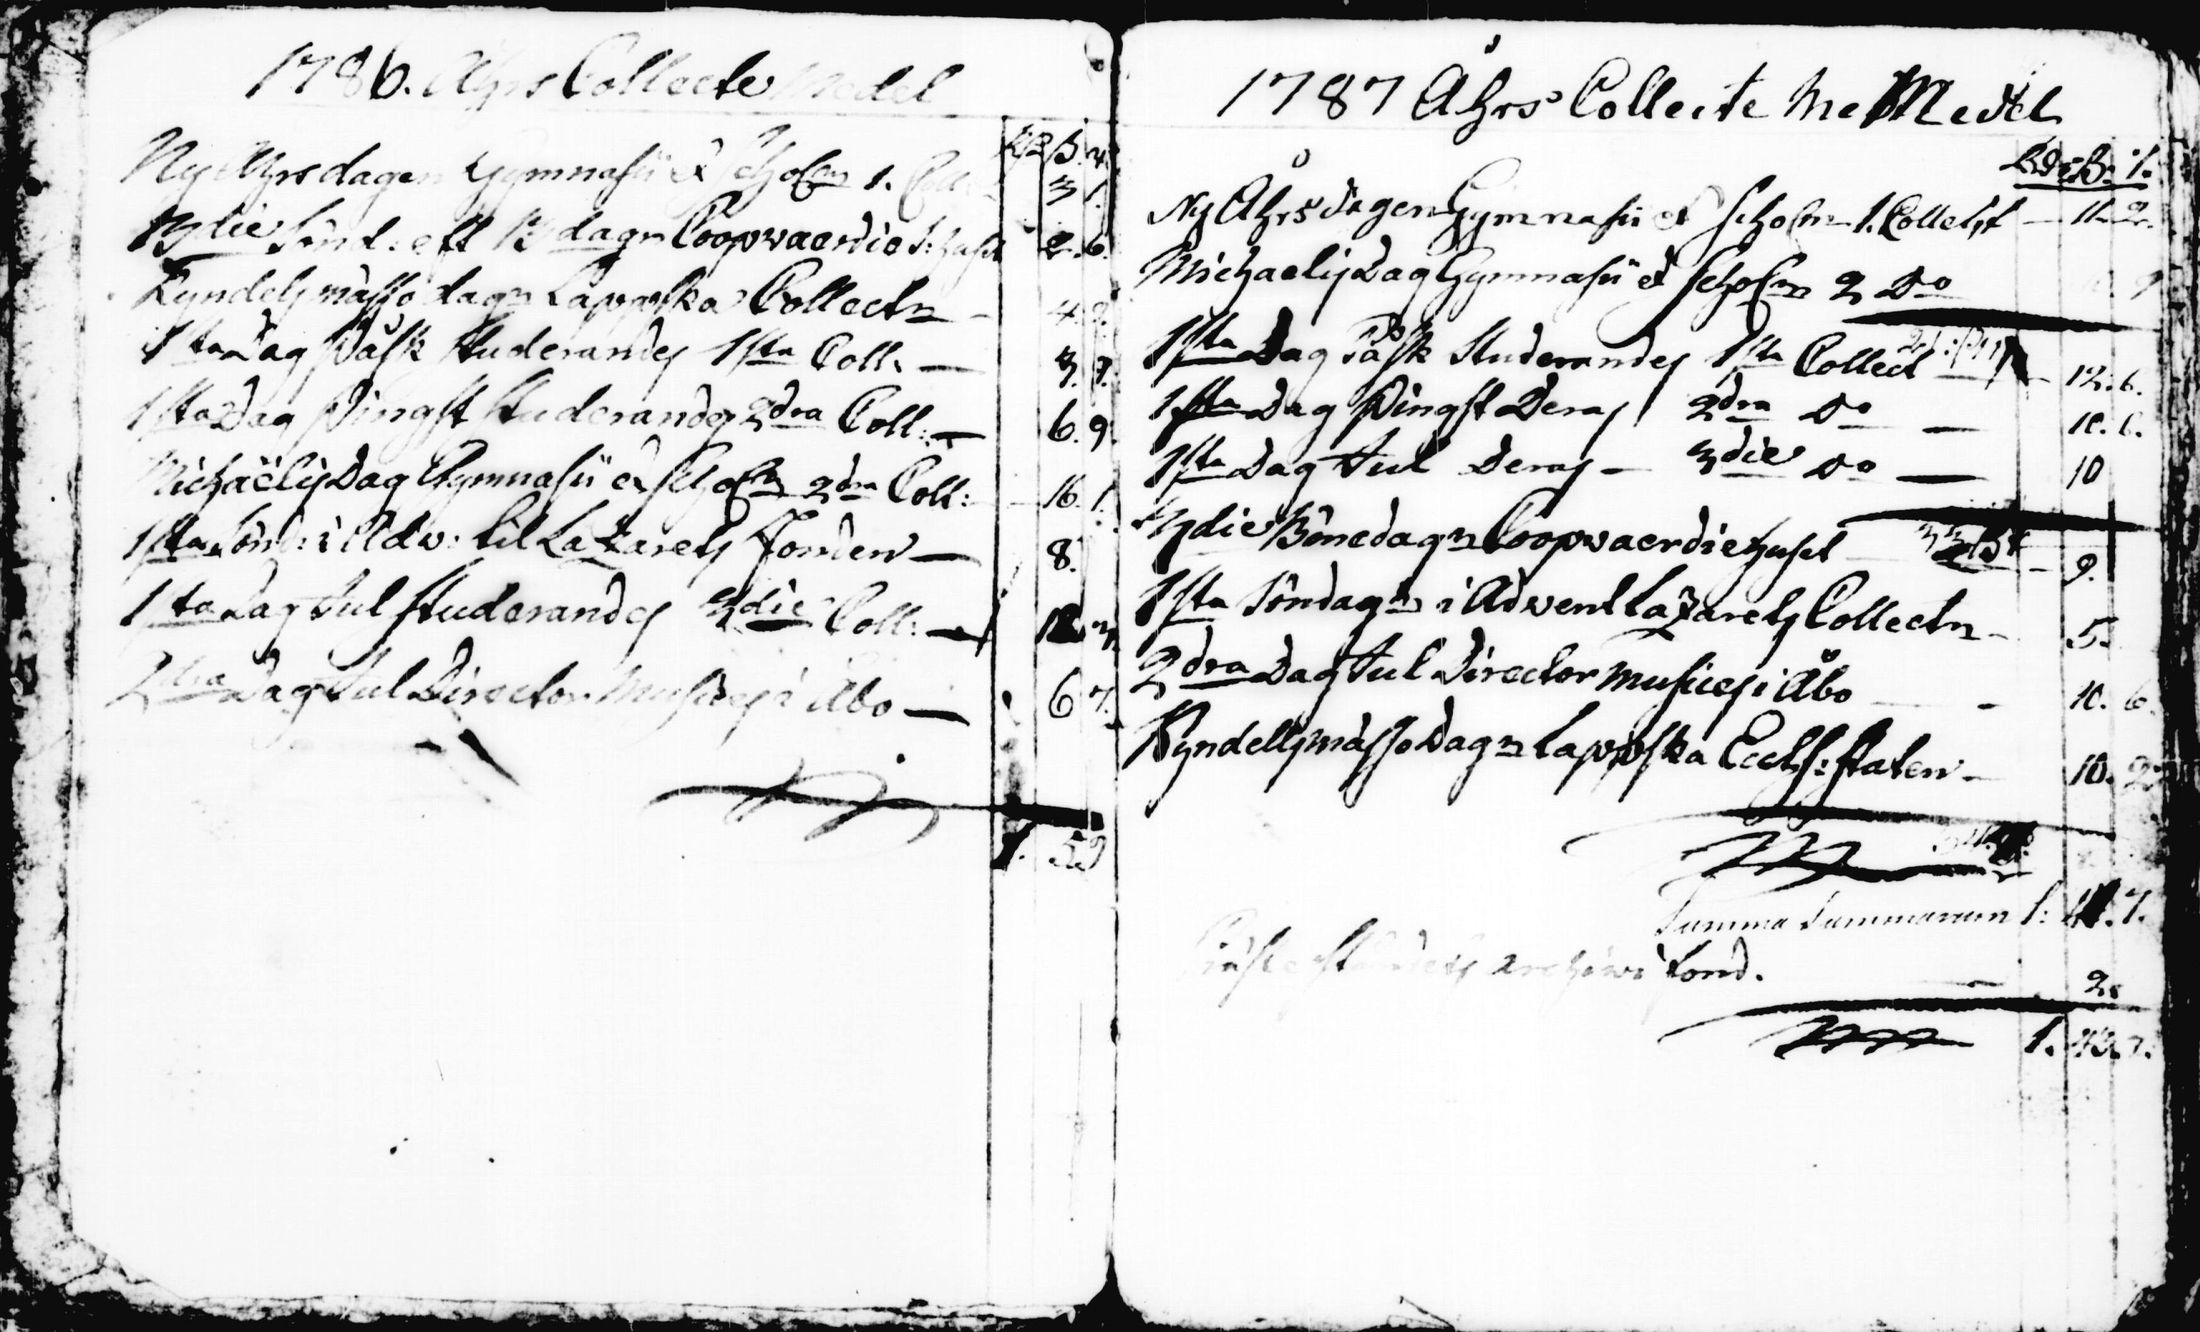 1786. Åhrs Collecte Medel
Rd ß. r.
Ny Åhrsdagen Gymnasii et Scholæ 1. Coll: 3 1.
3die Sönd. eft 13 dagn Coopvaerdie S: huset 2. 6.
Kyndelsmässo dagn Lappska Collectn - 4. 2.
1sta Dag Påsk Studerandes 1sta Coll. — 3. 7.
1sta Dag Pingst Studerandes 2dra Coll: — 6. 9.
Michäelis Dag Gymnasii et Scholæ 2dra Coll: 16. 1.
1sta Sönd: i Adv: til Lazarets Fonden — 8.
1sta Dag Jul Studerandes 3die Coll: —
2dra Dag Jul Director Musices i Åbo — 6 7.
1. 59
1787 Åhrs Collecte Me Medel
Rd: ß: r.
Ny Åhrsdagen Gymnasii et Scholæ 1. Collect — 11. 2.
Michaelis Dag Gymnasii et Scholæ 2 Do
1sta Dag Påsk Studerandes 1sta Collect — 12. 6.
1sta Dag Pingst Deras 2dra Do — 10. 6.
1sta Dag Jul Deras — 3die Do — 10
3die Bönedagn Coopvaerdiehuset — 9.
1sta Söndagn i Advent Lazarets Collectn - 5.
2dra Dag Jul Director Musices i Åbo — 10. 6.
Kyndelsmässo Dagn Lappska Eccles: staten — 10. 2.
Summa Summarum 1: 7.
Præste Ståndets Archivi fond. — 2.
1. 43. 7.